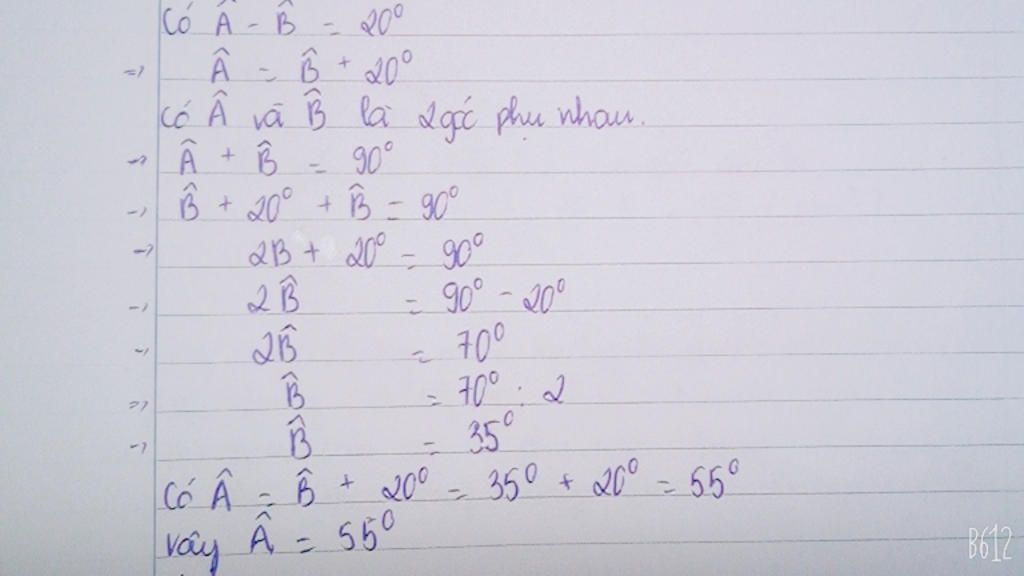 Có Â - B̂ = 20⁰
=> Â = B̂ + 20⁰
Có Â và B̂ là 2 góc phụ nhau.
=> Â + B̂ = 90⁰
=> B̂ + 20⁰ + B̂ = 90⁰
=> 2B + 20⁰ = 90⁰
=> 2B̂ = 90⁰ - 20⁰
=> 2B̂ = 70⁰
=> B̂ = 70⁰ : 2
=> B̂ = 35⁰
Có Â = B̂ + 20⁰ = 35⁰ + 20⁰ = 55⁰
vây Â = 55⁰
B612